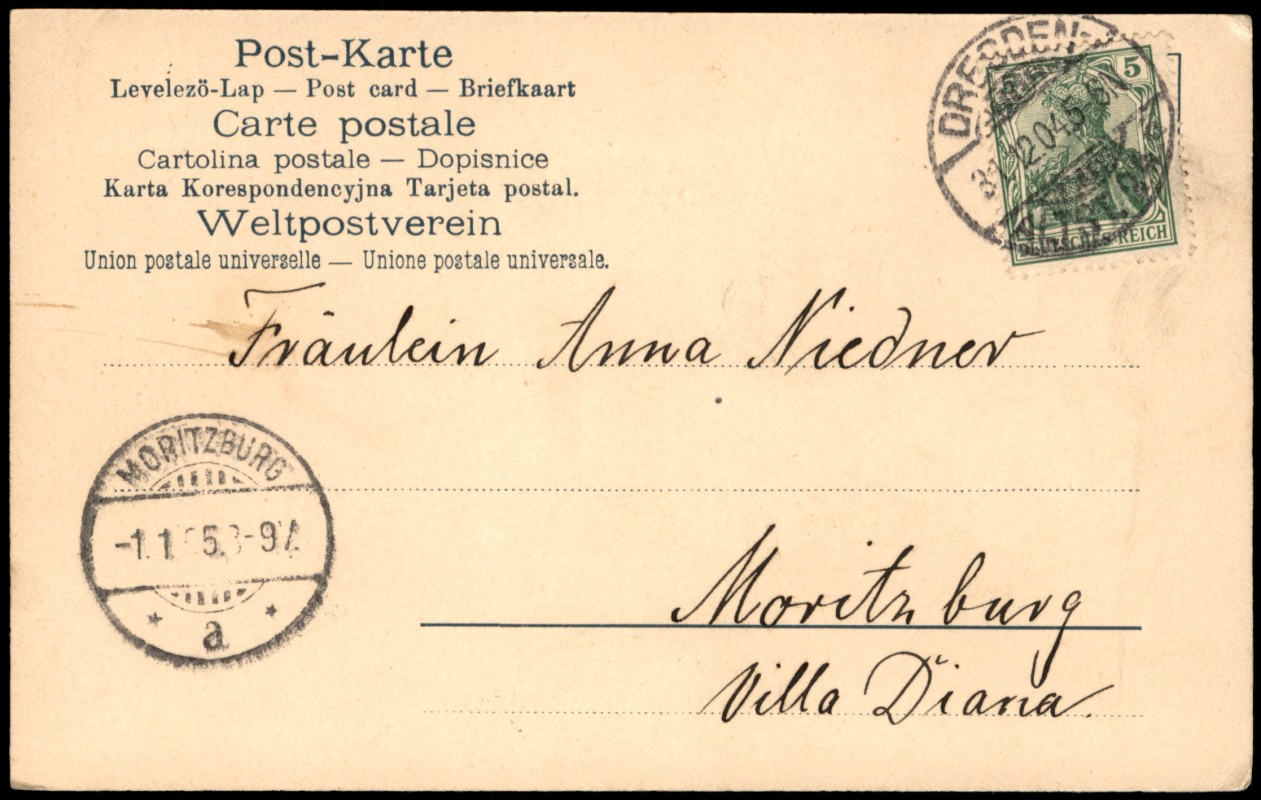 Post-Karte
Levelezö-Lap — Post card — Briefkaart
Carte postale
Cartolina postale — Dopisnice
Karta Korespondencyjna Tarjeta postal.
Weltpostverein
Union postale universelle — Unione postale universale.
DRESDEN
5
DEUTSCHES REICH
Fräulein Anna Niedner
MORITZBURG
a
Moritzburg
Villa Diana.